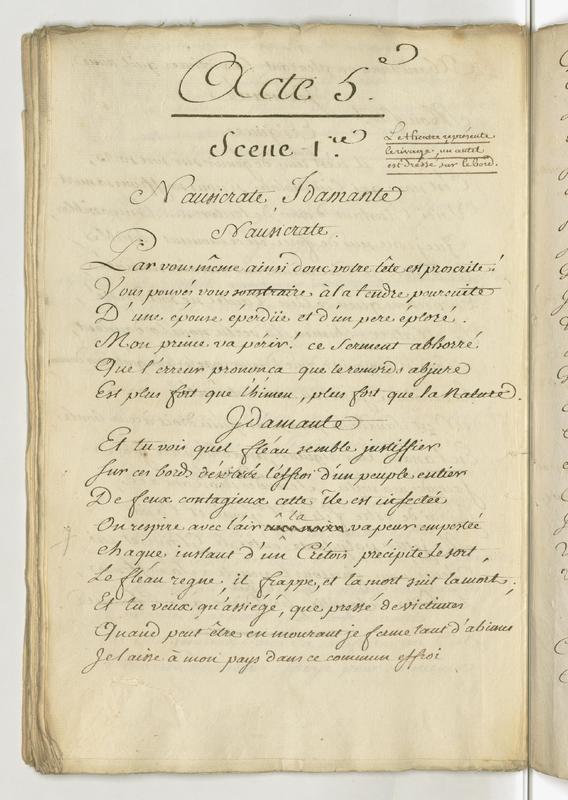 Acte 5.e
Scene 1.re
Le theatre représente
le rivage, un autel
est dressé sur le bord.
Nausicrate, Idamante
Nausicrate.
Par vous même ainsi donc votre tête est proscrite!
Vous pouvés vous soustraire à la tendre poursuite
D'une épouse éperdüe et d'un pere éploré.
Mon prince va périr! ce serment abhorré
Que l'erreur prononca que le remords abjure
Est plus fort que l'himen, plus fort que la Nature.
Idamante
Et tu vois quel fléau semble justiffier
Sur ces bords l'effroi d'un peuple entier
De feux contagieux cette île est infectée
On respire avec l'air la vapeur empestée
Chaque instant d'un Crétois précipite le sort,
Le fléau regne, il frappe, et la mort suit la mort;
Et tu veux qu'assiegé, que pressé de victimes
Quand peut être en mourant je ferme tant d'abimes
Je laisse à mon pays dans ce commun effroi